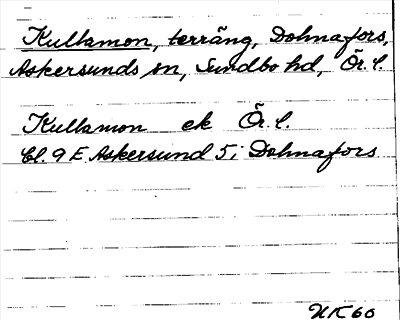 Kullamon, terräng, Dohnafors,
Askersunds sn, Sundbo hd, Ör. l.
Kullamon ek Ör. l.
Bl. 9 E Askersund 5 i Dohnafors
NK 60